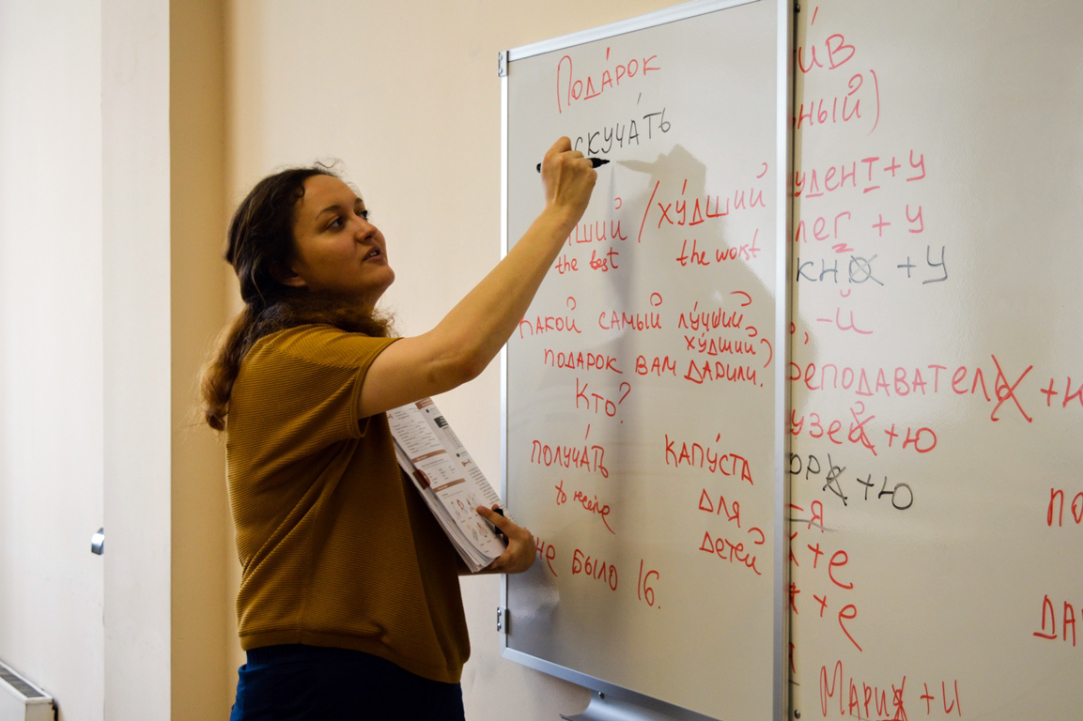 Пода́рок
скуча́ть
/ ху́дший
the best the worst
какой самый лучший
ху́дший)
подарок вам дарили?
Кто?
получа́ть
to receive
капу́ста
для
детей
не было 16.
ный)
удент+у
лег + у
кно +у
-й
реподаватель +ю
узей +ю
оре +ю
-я
+е
+е
Мария +и